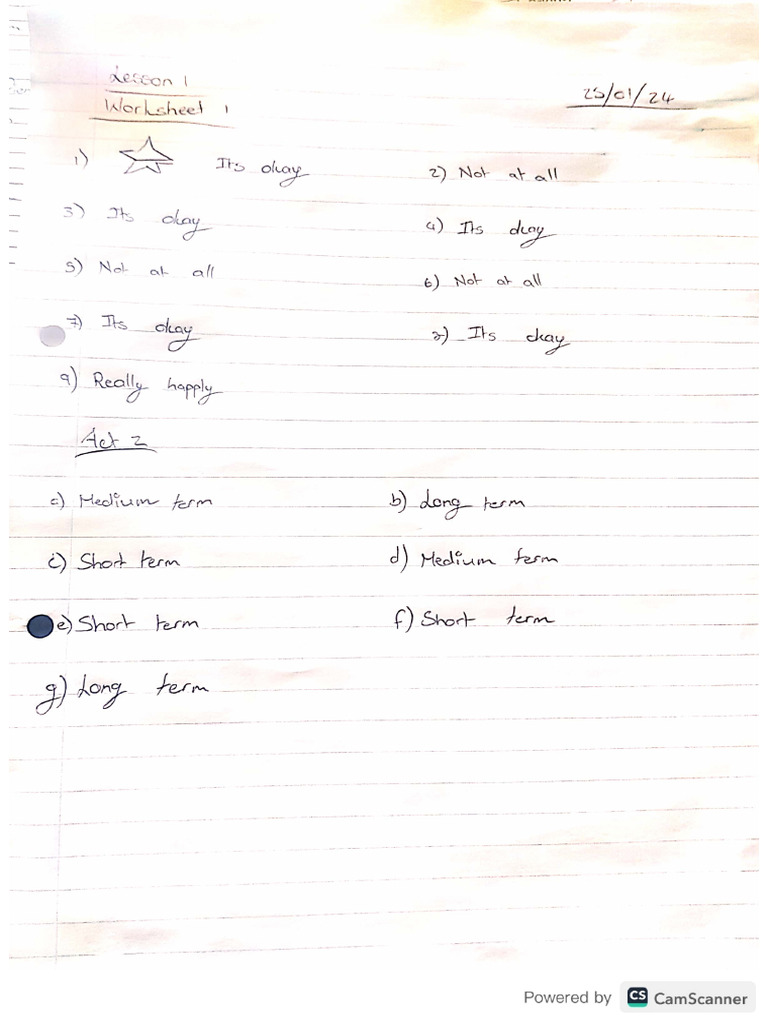 Lesson 1
Worksheet 1
25/01/24
1) Its okay
2) Not at all
3) Its okay
4) Its okay
5) Not at all
6) Not at all
7) Its okay
8) Its okay
9) Really happly
Act 2
a) Medium term
b) Long term
c) Short term
d) Medium term
e) Short term
f) Short term
g) Long term
Powered by CS CamScanner